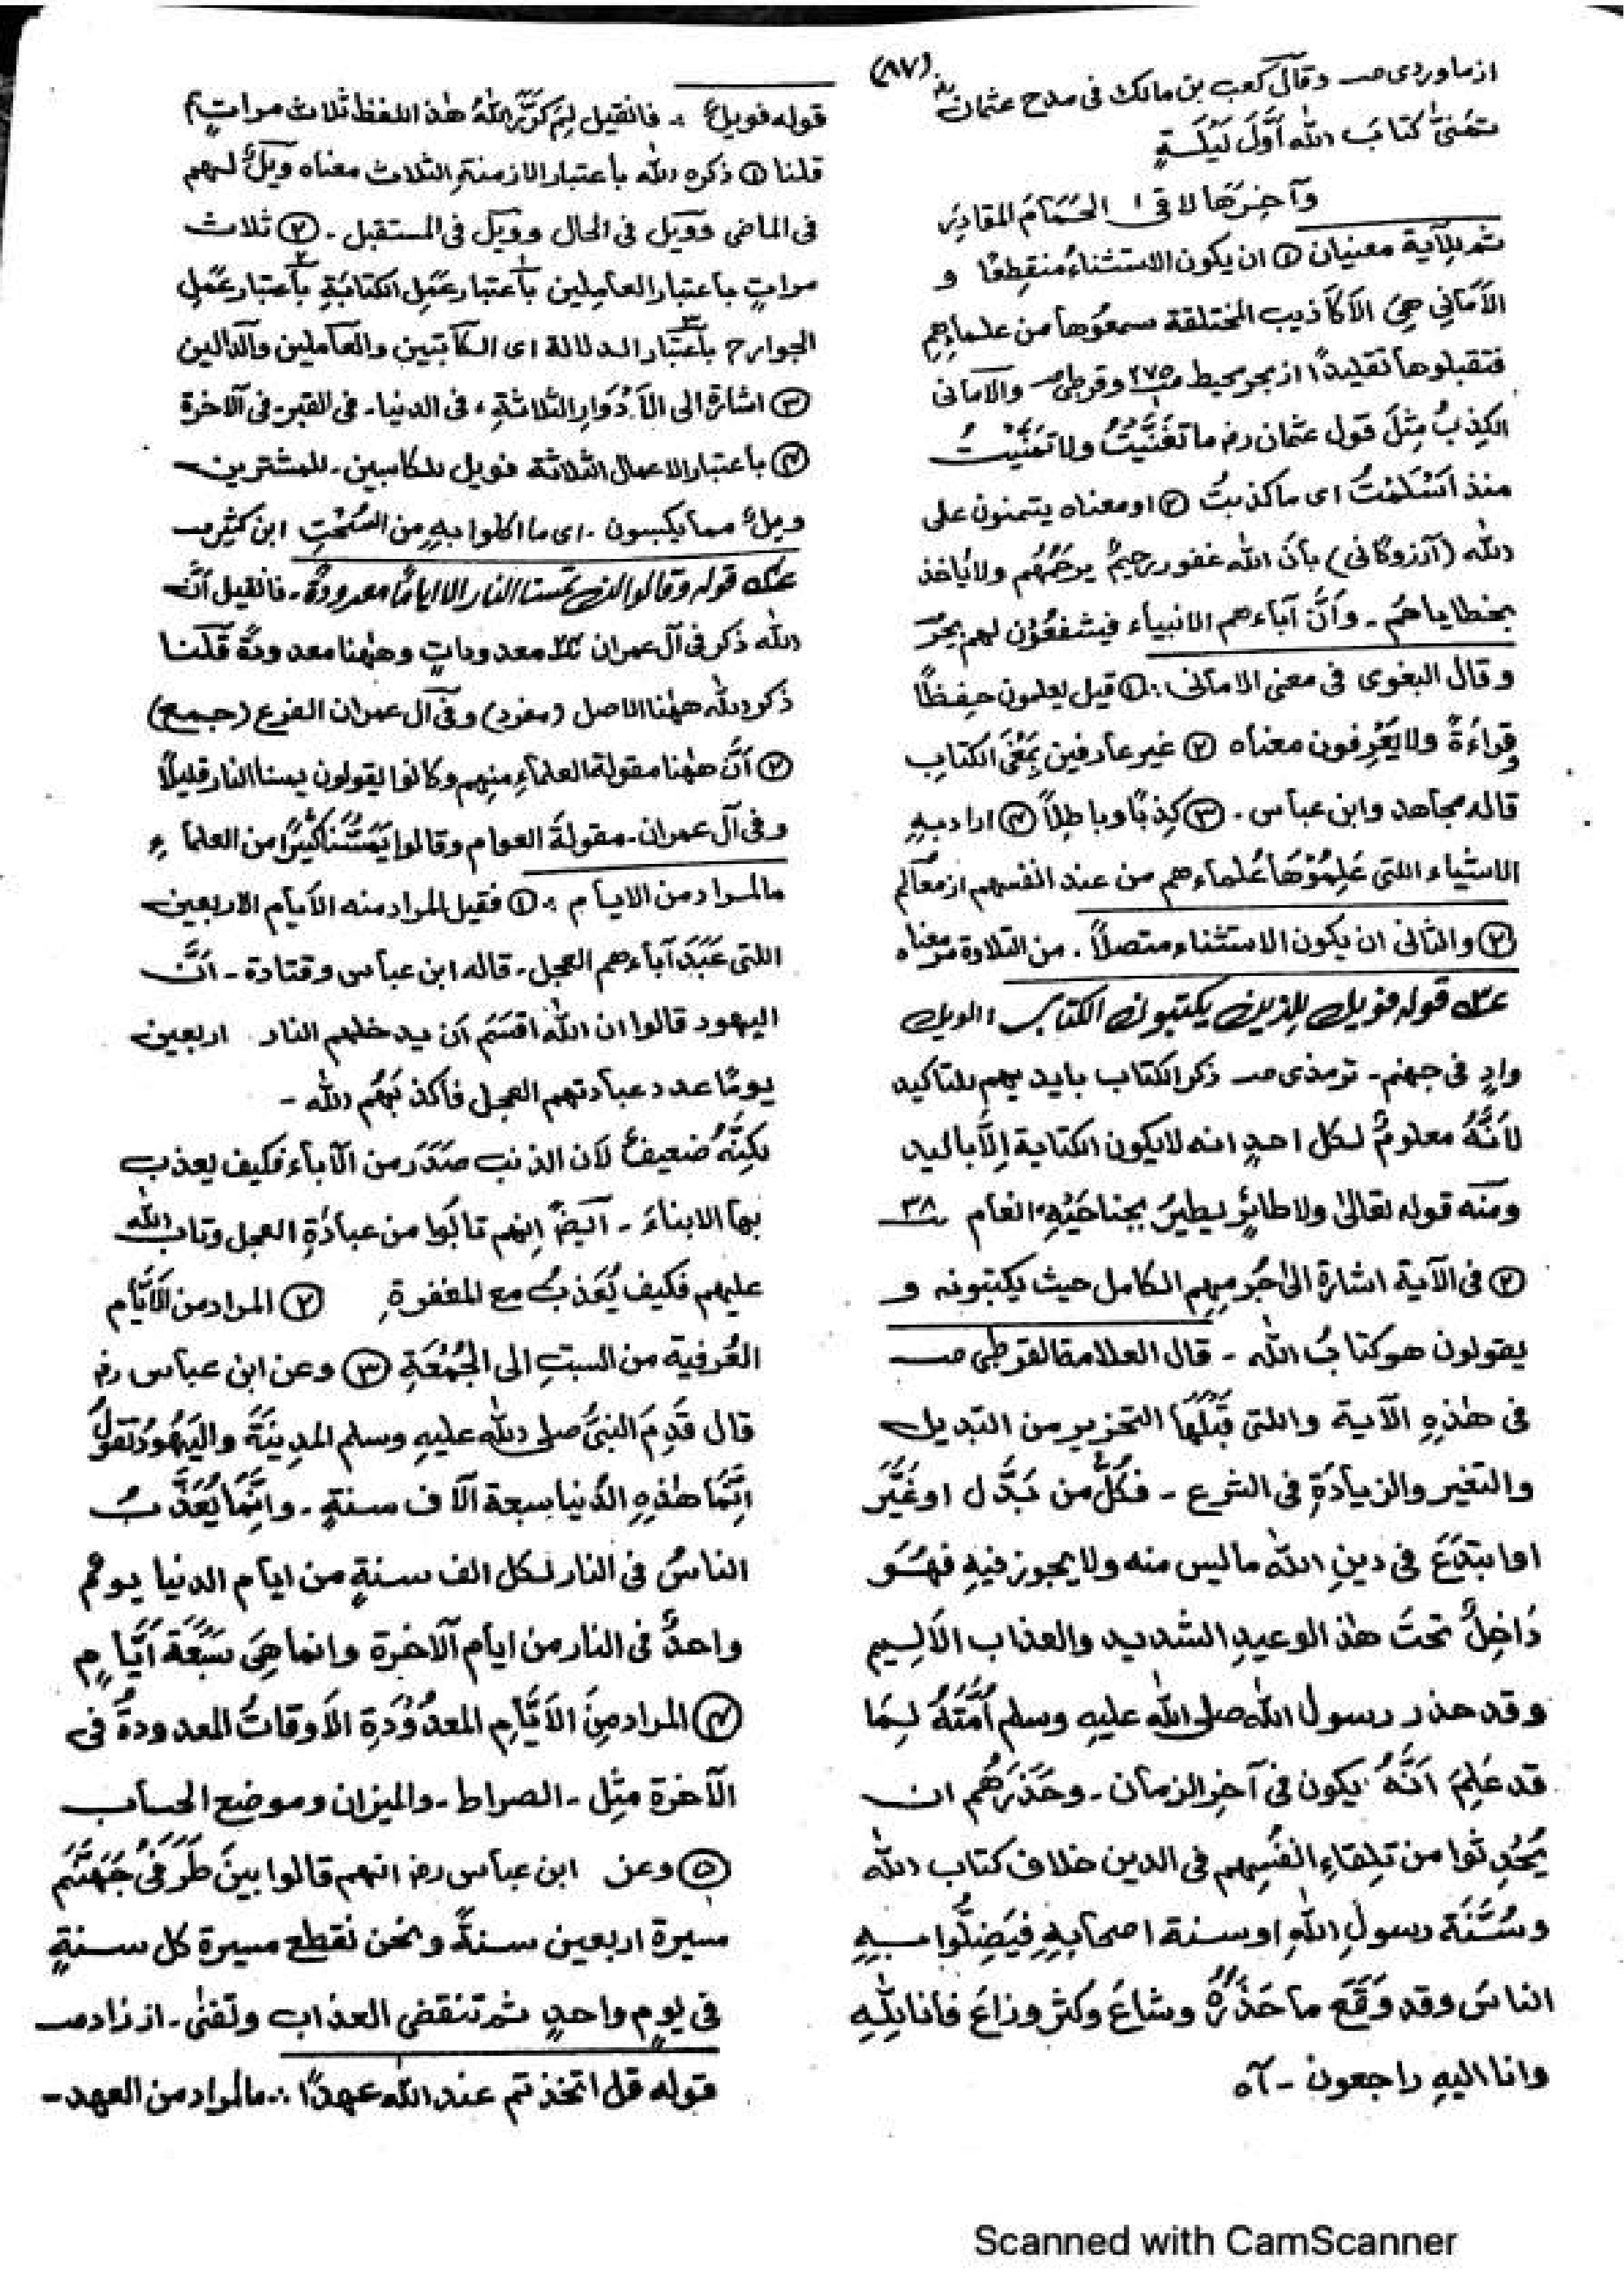 (٨٧)
از ماوردى صـ وقال كعب بن مالك فى مدح عثمان رضـ
تَمَنّىٰ كتابَ الله أوَّلَ لَيْلَةٍ
وآخِرَهَا لاقىٰ الحَمَامَ المقادِرِ
ثم للآية معنيان ① ان يكون الاستثناءُ منقطعًا و
الأَمَانِي هِيَ الأكاذيب المختلقة سمعوها من علماءِهِم
فتقبلوها تقليدًا از بحر محيط صـ٢٧٥ وقرطبى صـ والامانى
الكِذبُ مِثلَ قول عثمان رضـ ما تَغَنَّيْتُ ولا تَمَنَّيْتُ
منذ اَسْلَمْتُ اى ماكذبتُ ② او معناه يتمنون على
الله (آرزوگانى) بأنّ الله غفور رحيمٌ يرحَمُهُم ولايُاخذ
بخطاياهُم ـ وأنّ آباءهم الانبياء فيشفعُوْن لهم بحرصـ
وقال البغوى فى معنى الامانى :ـ ① قيل يعلمون حِفظًا
وقِراءةً ولا يَعْرِفون معناه ② غير عارفين بِمَعْنَى الكتابِ
قاله مجاهد وابن عباس ـ ③ كِذبًا وباطِلاً ④ ارادبِهِ
الاشياء اللتى عَلِمُوْهَا عُلماءهم من عند انفسهم از معالم
② والثانى ان يكون الاستثناء متصلاً ـ من التلاوة مرمعناه
قوله فويل للذين يكتبون الكتاب : الويل
وادٍ فى جهنم ـ ترمذى صـ ذكر الكتاب بايديهم للتاكيد
لأنَّهُ معلومٌ لكل احدٍ انه لايكون الكتابة إلاَّ باليد
ومنه قوله تعالىٰ ولا طائرٍ يطيرُ بجناحَيْهِ انعام ٣٨
② فى الآية اشارة الىٰ جُرمِهِم الكامل حيث يكتبونه و
يقولون هو كتابُ الله ـ قال العلامة القرطبى صـ
فى هٰذِهِ الآية واللتى قَبْلَهَا التحزير من التبديل
والتغير والزيادَةِ فى الشرع ـ فكُلُّ من بَدَّل اوغَيَّر
اوابتَدَعَ فى دينِ الله ماليس منه ولا يجوز فيهِ فَهُوَ
دَاخِلٌ تحتَ هٰذ الوعيدِ الشديد والعذاب الاَلِيم
وقد حذر رسول الله صلى الله عليهِ وسلم اُمَّتَهُ لِمَا
قد عَلِمَ اَنَّهُ يكون فى آخِرِ الزمان ـ وحَذَّرَهُم ان
يُحْدِثوا من تِلقاءِ انفُسِهِم فى الدين خلاف كتاب الله
وسُنَّةَ رسولِ اللهِ اوسنة اصحابِهِ فيَضِلُّوا بهِ
الناسَ وقد وَقَعَ ما حَذَّرَهُ وشاعَ وكثر وذاعَ فانا لِلّٰهِ
وانا اليهِ راجعون ـ آه
قوله فويلٌ :ـ فان قيل لِمَ كَرَّرَ اللهُ هٰذ اللفظ ثلاث مراتٍ
قلنا ① ذكره الله باعتبار الازمنةِ الثلاث معناه ويلٌ لهم
فى الماضى وويل فى الحال وويل فى المستقبل ـ ② ثلاث
مراتٍ باعتبار العامِلين باعتبار عَمَلِ الكتابَةِ باعتبار عَمَلِ
الجوارح باعتبار الدلالة اى الكاتبين والعاملين والدالين
③ اشارة الى الاَدْوَارِ الثلاثةِ، فى الدنيا ـ فى القبر ـ فى الآخرة
④ باعتبار الاعمال الثلاثة فويل للكاسبين ـ للمشترين
ويلٌ مما يكسبون ـ اى ما اكلوا بِهِ من السُحْتِ ابن كثير صـ
قوله وقالوا لن تمسنا النار الا اياماً معدودة ـ فان قيل اَنَّ
الله ذكر فى آل عمران معدوداتٍ وهٰهنا معدودةً قلنا
ذكر الله هٰهنا الاصل (مفرد) وفى آل عمران الفرع (جمع)
② أَنَّ هٰهنا مقولة العلماءِ منهم وكانوا يقولون يمسنا النار قليلاً
وفى آل عمران ـ مقولةَ العوام وقالوا يَمَسُّنَا كَثِيْرًا من العلماء
مالمراد من الايام :ـ ① فقيل المراد منه الاَيام الاربعين
اللتى عَبَدَ آباءهم العجل ـ قاله ابن عباس وقتادة ـ اَنَّ
اليهود قالوا ان الله اَقْسَمَ اَن يدخلهم النار اربعين
يومًا عدد عبادتهم العجل فاَكذَبَهُم الله ـ
لكِنَّهُ ضعيفٌ لاَن الذنب صَدَرَ من الآباء فكيف يعذب
بها الابناءَ ـ اَيضً انهم تابُوا من عبادَةِ العجل وتاب الله
عليهم فكيف يُعَذبُ مع المغفرةِ ② المراد من الاَيَّام
العُرفية من السبتِ الى الجُمُعَةِ ③ وعن ابن عباس رضـ
قال قَدِمَ النبىُّ صلى الله عليهِ وسلم المدِينَةَ واليَهُودُ تقولُ
اِنَّمَا هٰذِهِ الدُنيا سبعة اٰلاف سنةٍ ـ وانَّمَا يُعَذَّبُ
الناسُ فى النار لكل الف سنةٍ من ايام الدنيا يومٌ
واحدٌ فى النار من ايام الآخرة وانما هِيَ سَبْعَة اَيَّامٍ
④ المراد مِنَ الاَيَّامِ المعدُوْدَةِ الاَوقاتُ المعدودةُ فى
الآخرة مثِل ـ الصراط ـ والميزان وموضع الحساب
⑤ وعن ابن عباس رضـ انهم قالوا بينَ طَرَفَىْ جَهَنَّم
مسيرة اربعين سنةً ونحن نقطع مسيرة كل سنةٍ
فى يومٍ واحدٍ ثم تنقضى العذاب وتفنىٰ ـ از زاد صـ
قوله قل اتخذتم عند الله عهدًا :ـ مالمراد من العهد ـ
Scanned with CamScanner